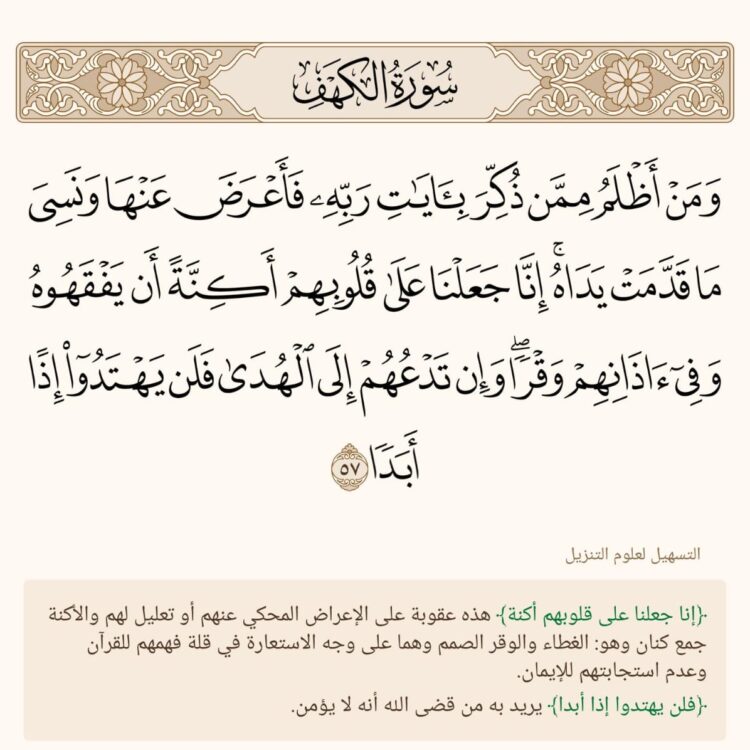 سُورَةُ الكَهۡفِ
وَمَنۡ أَظۡلَمُ مِمَّن ذُكِّرَ بِـَٔايَٰتِ رَبِّهِۦ فَأَعۡرَضَ عَنۡهَا وَنَسِيَ
مَا قَدَّمَتۡ يَدَاهُۚ إِنَّا جَعَلۡنَا عَلَىٰ قُلُوبِهِمۡ أَكِنَّةً أَن يَفۡقَهُوهُ
وَفِيٓ ءَاذَانِهِمۡ وَقۡرٗاۖ وَإِن تَدۡعُهُمۡ إِلَى ٱلۡهُدَىٰ فَلَن يَهۡتَدُوٓاْ إِذًا
أَبَدٗا ٥٧
التسهيل لعلوم التنزيل
﴿إنا جعلنا على قلوبهم أكنة﴾ هذه عقوبة على الإعراض المحكي عنهم أو تعليل لهم والأكنة
جمع كنان وهو: الغطاء والوقر الصمم وهما على وجه الاستعارة في قلة فهمهم للقرآن
وعدم استجابتهم للإيمان.
﴿فلن يهتدوا إذا أبدا﴾ يريد به من قضى الله أنه لا يؤمن.